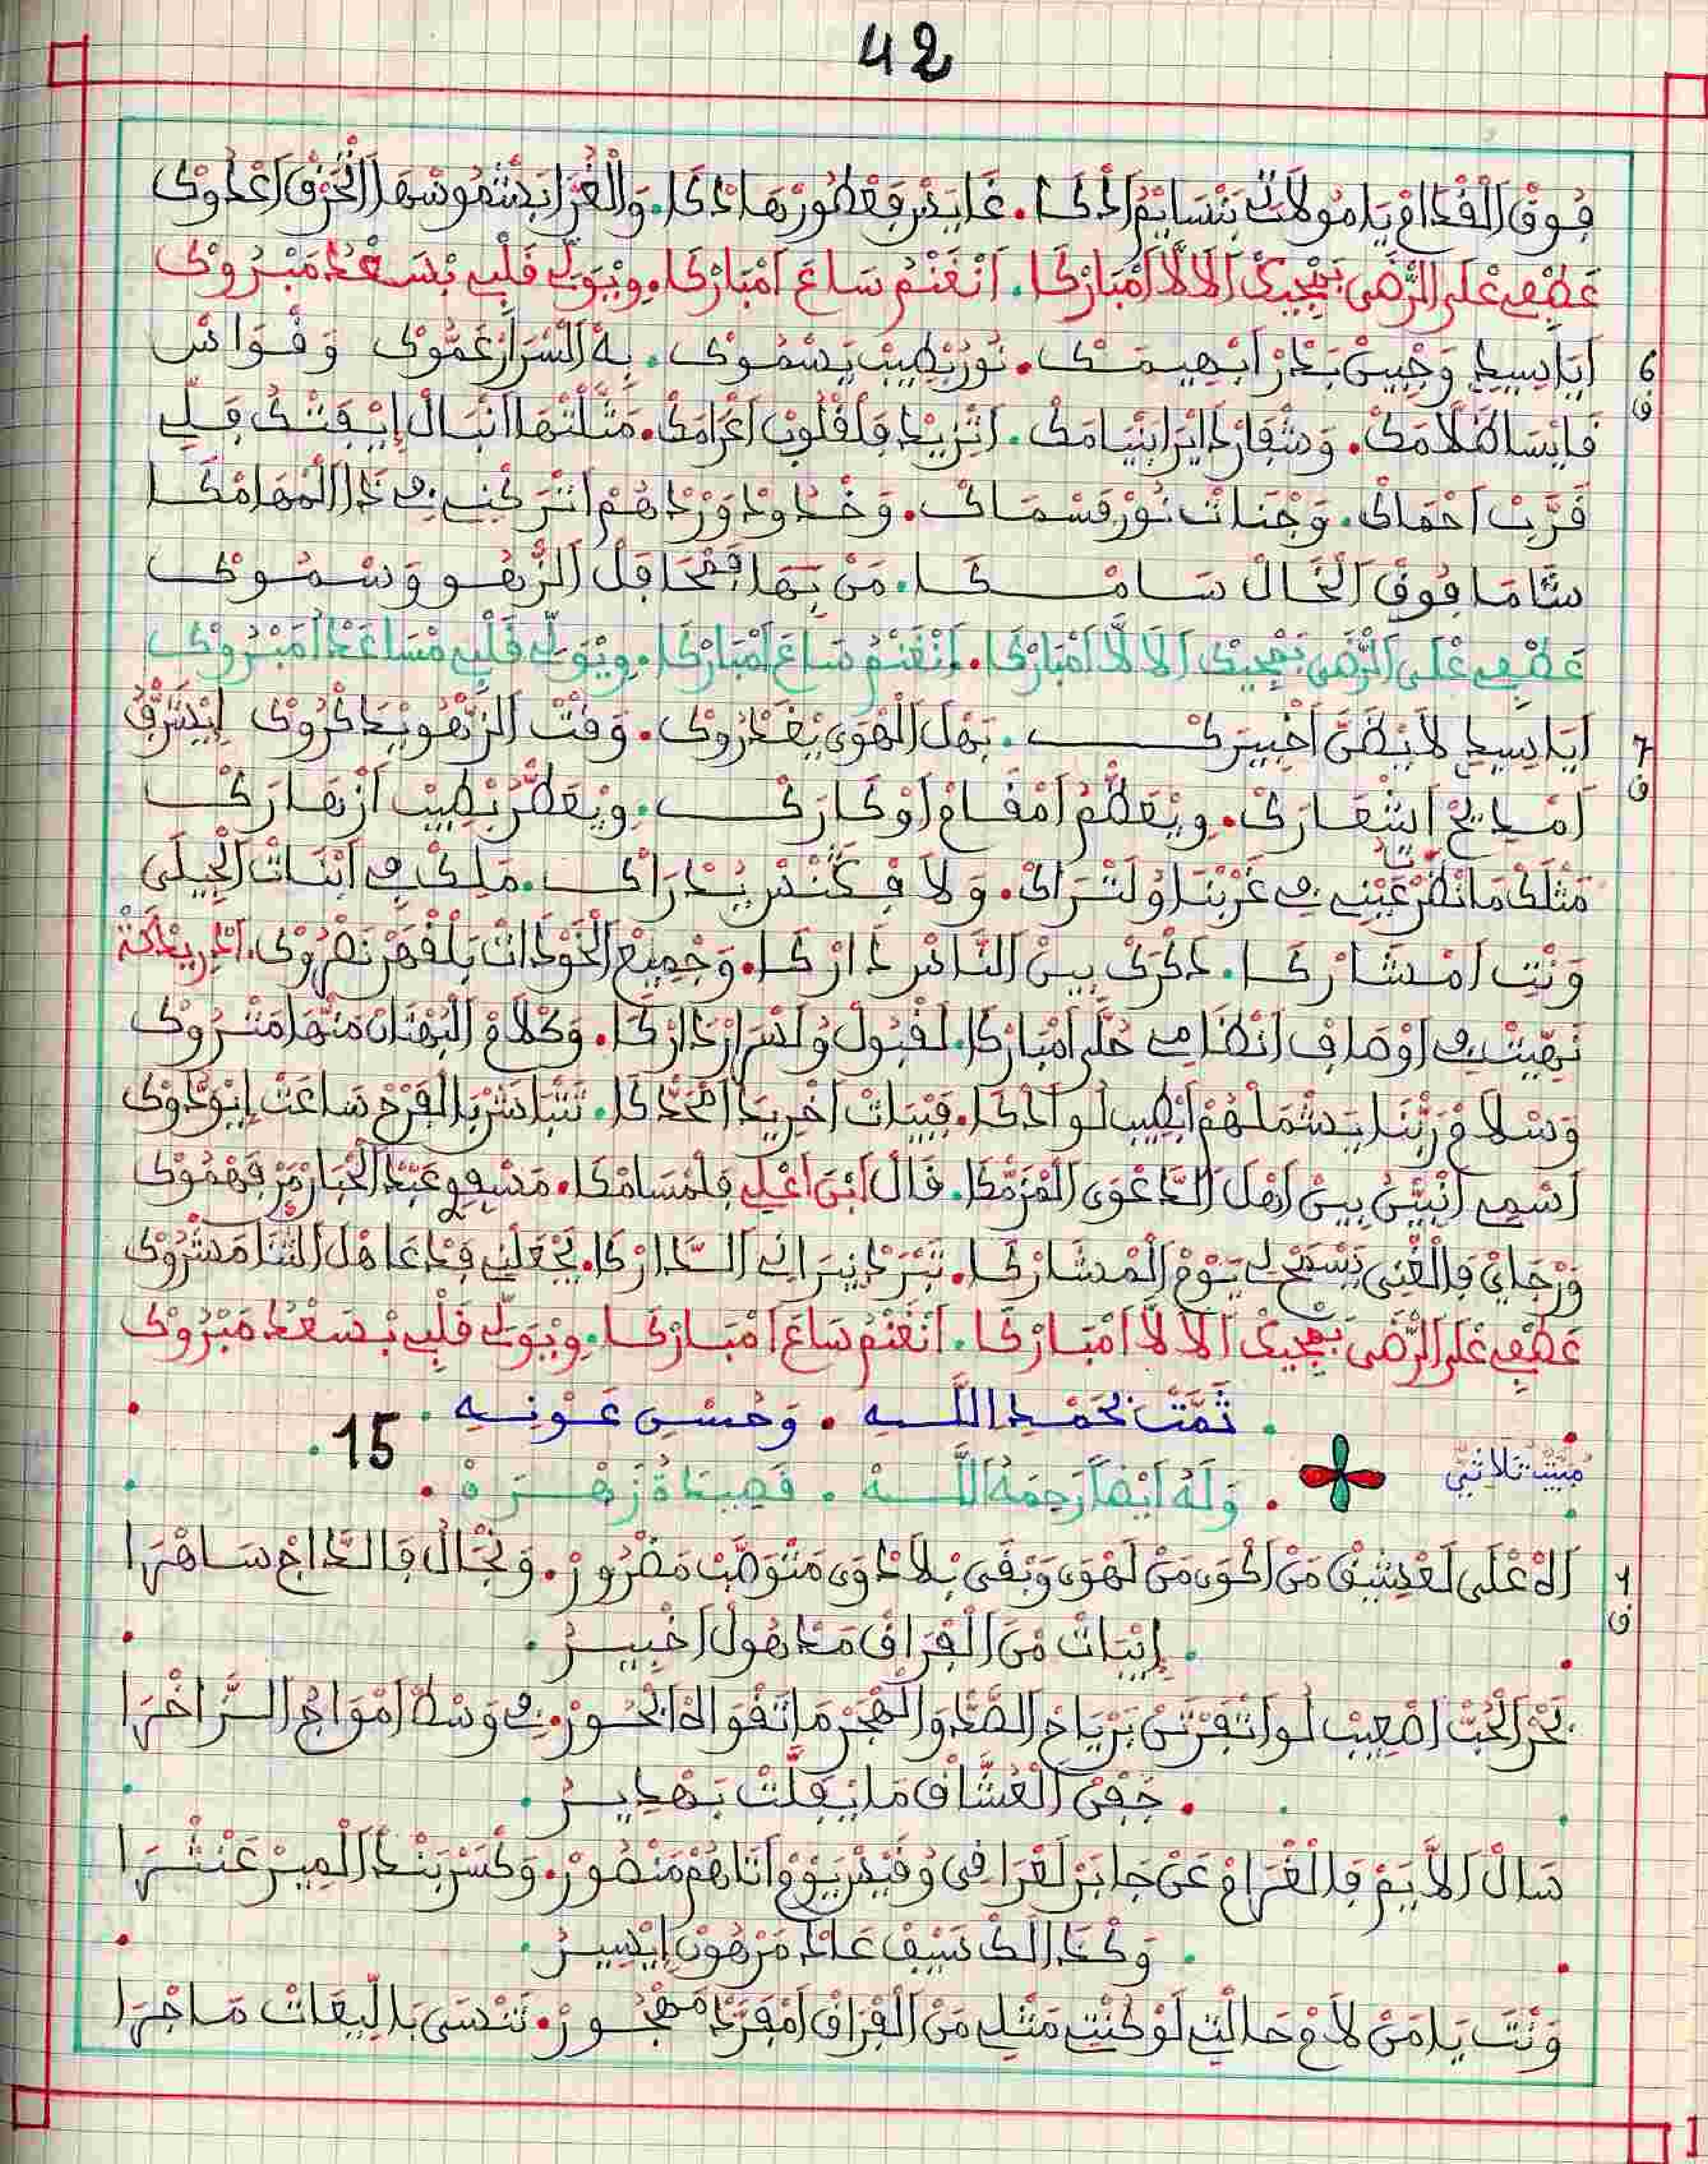 42
فُوقْ الْقْدَامْ يَا مُولَاتْ بَنْسَايَمْ اذْكَا. غَايَدْ فَعْطُورْهَا ذْكَا. وَالْغُرَّا بَشْمُوسْهَا الْحَزْقْ اعْدُوكْ
عَطْفِي عْلَى الرّْضَى بَمْجِيكْ اَلَالَّا امْبَارْكَا. اَنْغَنْمُ سَاعَ امْبَارْكَا. وِيْوَلِّي قَلْبِي بْسَعْدُ مَبْرُوكْ
6 ق
اَيَا سِيدِي وَجْبِينْ بَدْرْ ابْهِيمَكْ. نُورْ بْطِيبْ يَسْمُوكْ. بِهْ السّْرَارْ عَمُّوكْ وَقْوَاسْ
فَايْسَا ظْلَامَكْ. وَشْفَارْ دَايْرَا بْنْيَامَكْ. اتْزِيدْ فَلْقْلُوبْ اغْرَامَكْ. مَثَّلْتْهَا انْبَالْ إِيْفَتْكُ فِيَّ
قَرَّبْ احْمَاكْ. وَجْنَاتْ نُورْ فَسْمَاكْ. وَخْدُودْ وَرْدَاهُمْ اتْرَكْنِي فِي ذَا الْمْهَامْكَا
شَامَا فُوقْ الْخَالْ سَامْكَا. مَنْ بَهَا فَمْحَافِلْ الزّْهُو وَسْمُوكْ
عَطْفِي عْلَى الرّْضَى بَمْجِيكْ اَلَا لَّا امْبَارْكَا. اَنْغَنْمُ سَاعَ امْبَارْكَا. وِيْوَلِّي قَلْبِي مْسَاعْدُ امَبْرُوكْ
7 ق
اَيَا سِيدِي لَا يْظَنَّ اخْبِيرَكْ. بَهْلْ الْهْوَى يْغَدْرُوكْ. وَقْتْ الزّْهُو يْذَكْرُوكْ اِيْشَرَّفُ
امْدِيحْ اشْعَارَكْ. وِيْعَظْمُ امْقَامْ اوْكَارَكْ. وِيْعَطَّرْ بْطِيبْ ازْهَارَكْ
مَثْلَكْ مَا نْظَرْ عَيْنِي فِي غَرْبْنَا وُلَتْرَاكْ. وَلَا فْكَنْدْرْ يُدْرَاكْ. مَلْكْ فِي ابْنَاتْ الْجِيلَى
وَنْتِ امْشَارْكَا. ذَكْرَكْ بِينْ النَّاسْ دَارْكَا. وَجْمِيعْ الْخَوْدَاتْ بَلْقْهَرْ نَصْرُوكْ. الدريدكة
نَهِّيتْ فِي اوْصَافْ انْظَامِي حُلَّ امْبَارْكَا. لَقْبُولْ وُلَسْرَارْ دَارْكَا. وَكْلَامْ الْبُهْتَانْ مَنْهَا مَتْرُوكْ
وَسْلَامْ رَبّْنَا يَشْمَلْهُمْ ابْطِيبْ لُو اذْكَا. فَبْيَاتْ اخْرِيدَا امْحَدّْكَا. تَتْبَاشَرْ بَالْفَرْحْ سَاعَتْ اِيْوَدُّوكْ
اسْمِي انْبَيّْنُ بِينْ اهْلْ الدَّعْوَى الْمْزَمّْكَا. قَالْ ابْنْ اعْلِي فَلْمْسَامْكَا. مَسْفِيوِي عَبْدْ الْجَبَّارْ مَنْ فَهْمُوكْ
وَرْجَايْ فَالْغْنِي يَسْمَحْ لِي يَوْمْ الْمْشَارْكَا. تَبْرَدْ نِيرَانِي الدَّارْكَا. يَجْعَلْنِي فَدْعَا هْلْ الثّْنَا مَشْرُوكْ
عَطْفِي عْلَى الرّْضَى بَمْجِيكْ اَلَا لَّا امْبَارْكَا. اَنْغَنْمُ سَاعَ امْبَارْكَا. وِيْوَلِّي قَلْبِي بْسَعْدُ مَبْرُوكْ
. تَمَّتْ بِحَمْدِ اللَّـهِ . وَحُسْنِ عَوْنِهِ .
مْبَيَّتْ ثُلَاثِيّ . وَلَهُ أَيْضاً رَحِمَهُ اللَّـهْ . قَصِيدَةُ زَهْرَةْ . 15 .
1 ق
اَلَاهْ عْلَى لَعْشِيقْ مَنْ اكْوَى مَنْ لَهْوَى وَبْقَى بْلَا دْوَى مَتْوَصَّبْ مَضْرُورْ. وَنْجَالُ فَالدَّاجْ سَاهْرَا
. اِيْبَاتْ مْنَ الْفْرَاقْ مَدْهُولْ اخْبِيرُ .
بَحْرْ الْحُبّْ اصْعِيبْ لُو اتْقَرْتَنْ بَرْيَاحْ الصَّدّْ وَالْهْجَرْ مَا تَقْوَالَاهْ ابْحُورْ. فِي وَسْطْ امْوَاجُ الزَّاخْرَا
. جَفْنْ الْعُشَّاقْ مَا يْفَلَّتْ بَهْدِيرُ .
سَالْ اَلَايَمْ فَالْغْرَامْ عَنْ جَابَرْ لَعْرَاقِي وُقَيْسْ يَوْمْ اتَاهُمْ مَنْصُورْ. وَكْسَرْ بَنْدْ الْمِيرْ عَنْتْرَا
. وَكْدَالَكْ سَيْفْ عَادْ مَرْهُونْ اِيْسِيرُ .
وَنْتَ يَا مَنْ لَامْ حَالْتِي لَوْ كُنْتِ مَثْلِي مَنْ الْفْرَاقْ امْفَرَّدْ مَهْجُورْ. تَنْسَى بَالِّيعَاتْ مَا جْرَا